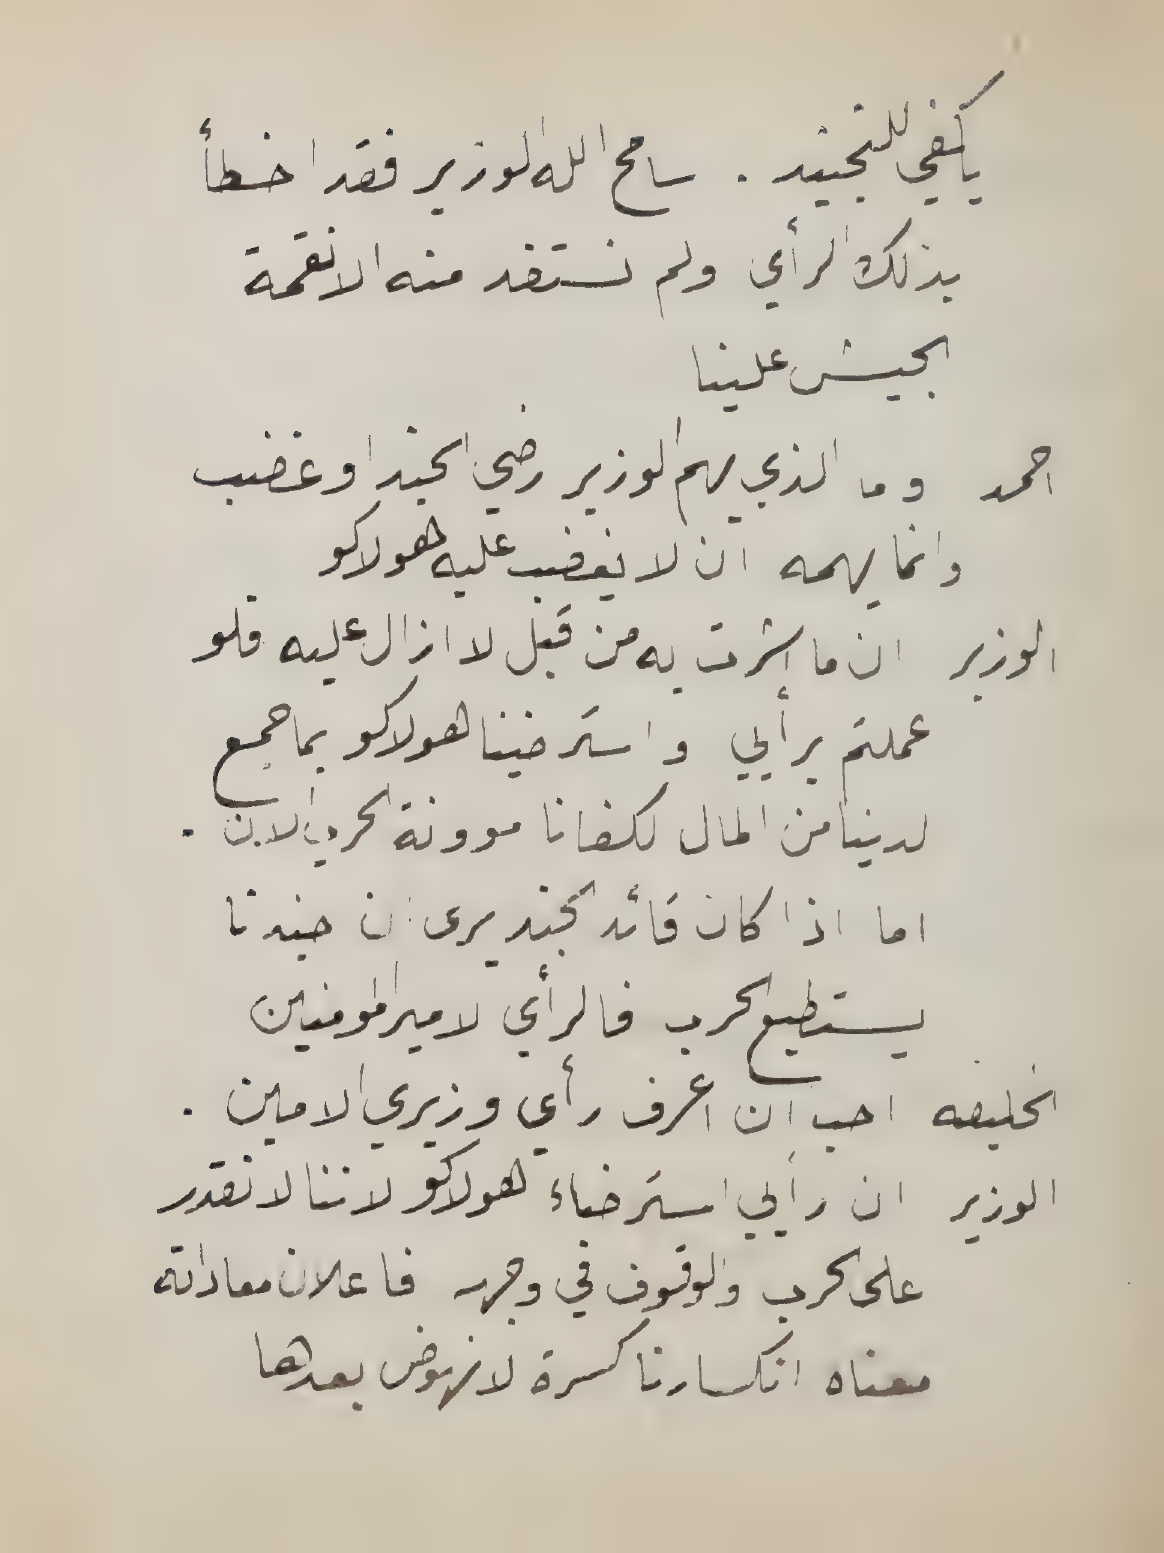 يا كفي للتجنيد . سامح الله الوزير فقد اخطأ
بذلك الرأي ولم نستفد منه الا نقمة
الجيش علينا
احمد وما الذي يهم الوزير رضي الجند او غضب
وانما يهمه ان لا يغضب عليه هولاكو
الوزير ان ما اشرت به من قبل لا ازال عليه فلو
عملتم برأيي واسترضينا هولاكو بما جمع
لدينا من المال لكفانا موونة الحرب الان .
اما اذا كان قائد الجند يرى ان جندنا
يستطيع الحرب فالرأي لامير المومنين
الخليفه احب ان اعرف رأي وزيري الامين .
الوزير ان رأيي استرضاء هولاكو لاننا لا نقدر
على الحرب والوقوف في وجهه فاعلان معاداته
معناه انكسارنا كسرة لا نهوض بعدها